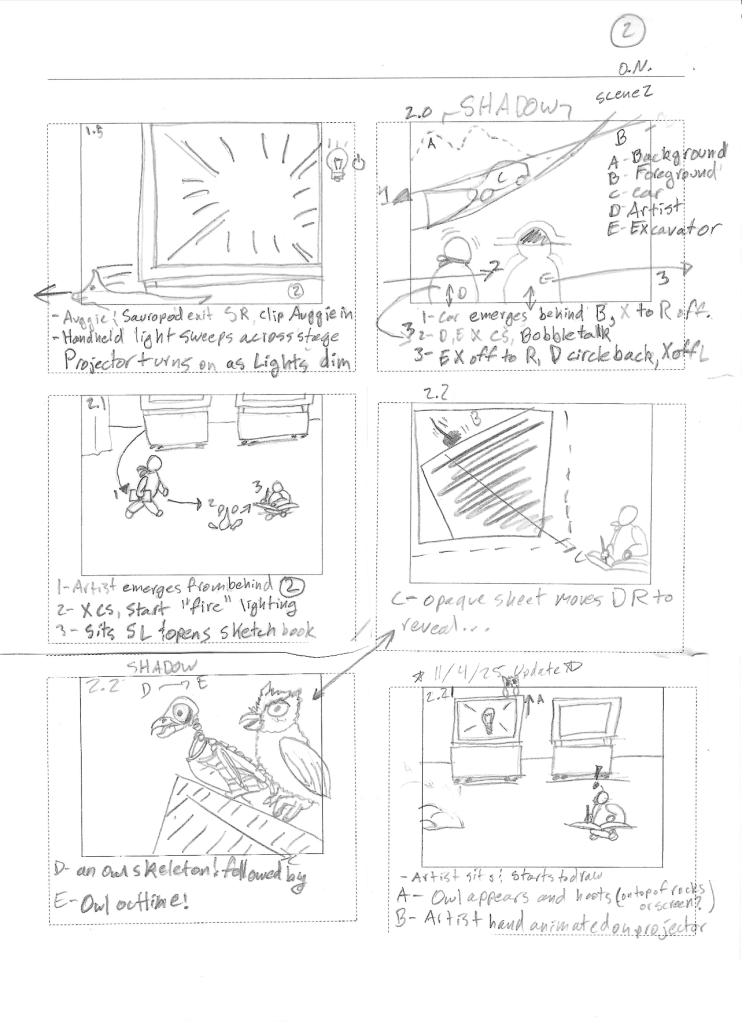 2
O.N.
Scene 2
1.5
2
- Auggie & Sauropod exit SR, clip Auggie in
- Handheld light sweeps across stage
Projector turns on as Lights dim
2.0 SHADOW
A
B
C
D
E
1
2
3
A- Background
B- Foreground
C- car
D- Artist
E- Excavator
1- Car emerges behind B, X to R off.
3
2- D, E X CS, Bobble talk
3- E X off to R, D circle back, X off L
2.1
1
2
3
1- Artist emerges from behind 2
2- X CS, Start "fire" lighting
3- Sits SL & opens sketch book
2.2
B
C
C- opaque sheet moves DR to
reveal...
SHADOW
2.2
D → E
D- an owl skeleton & followed by
E- Owl outline!
* 11/4/25 Update *
2.2
A
!
- Artist sits & starts to draw
A- Owl appears and hoots (on top of rocks
or screen?)
B- Artist hand animated on projector